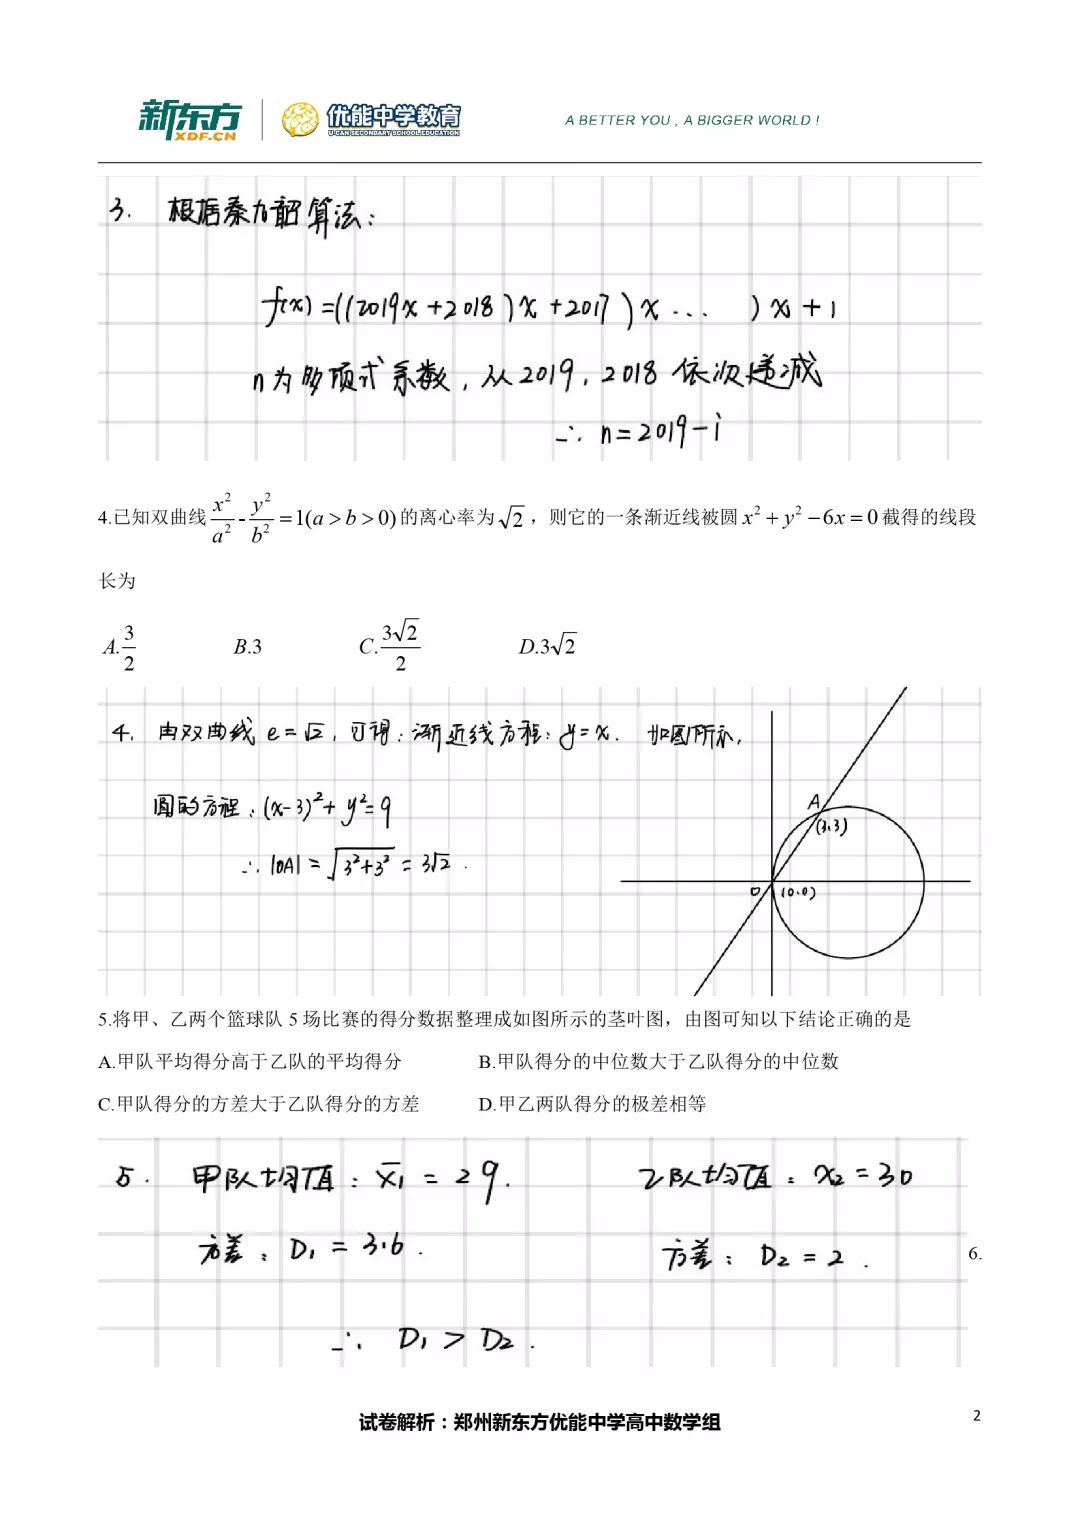 新东方
XDF.CN
优能中学教育
U-CAN SECONDARY SCHOOL EDUCATION
A BETTER YOU , A BIGGER WORLD !
3. 根据秦九韶算法:
f(x)=((2019x+2018)x+2017)x... )x+1
n为多项式系数,从2019,2018依次递减
∴ n=2019-i
4.已知双曲线 x²/a² - y²/b² =1(a>b>0)的离心率为√2,则它的一条渐近线被圆x²+y²-6x=0截得的线段
长为
A.3/2 B.3 C.3√2/2 D.3√2
4. 由双曲线e=√2,可得:渐近线方程:y=x. 如图所示,
圆的方程:(x-3)²+y²=9
∴ |OA|=√3²+3²=3√2.
A
(3,3)
O (0,0)
5.将甲、乙两个篮球队5场比赛的得分数据整理成如图所示的茎叶图,由图可知以下结论正确的是
A.甲队平均得分高于乙队的平均得分 B.甲队得分的中位数大于乙队得分的中位数
C.甲队得分的方差大于乙队得分的方差 D.甲乙两队得分的极差相等
5. 甲队均值:x̄₁=29. 乙队均值:x₂=30
方差:D₁=3.6. 方差:D₂=2.
6.
∴ D₁>D₂.
试卷解析:郑州新东方优能中学高中数学组
2